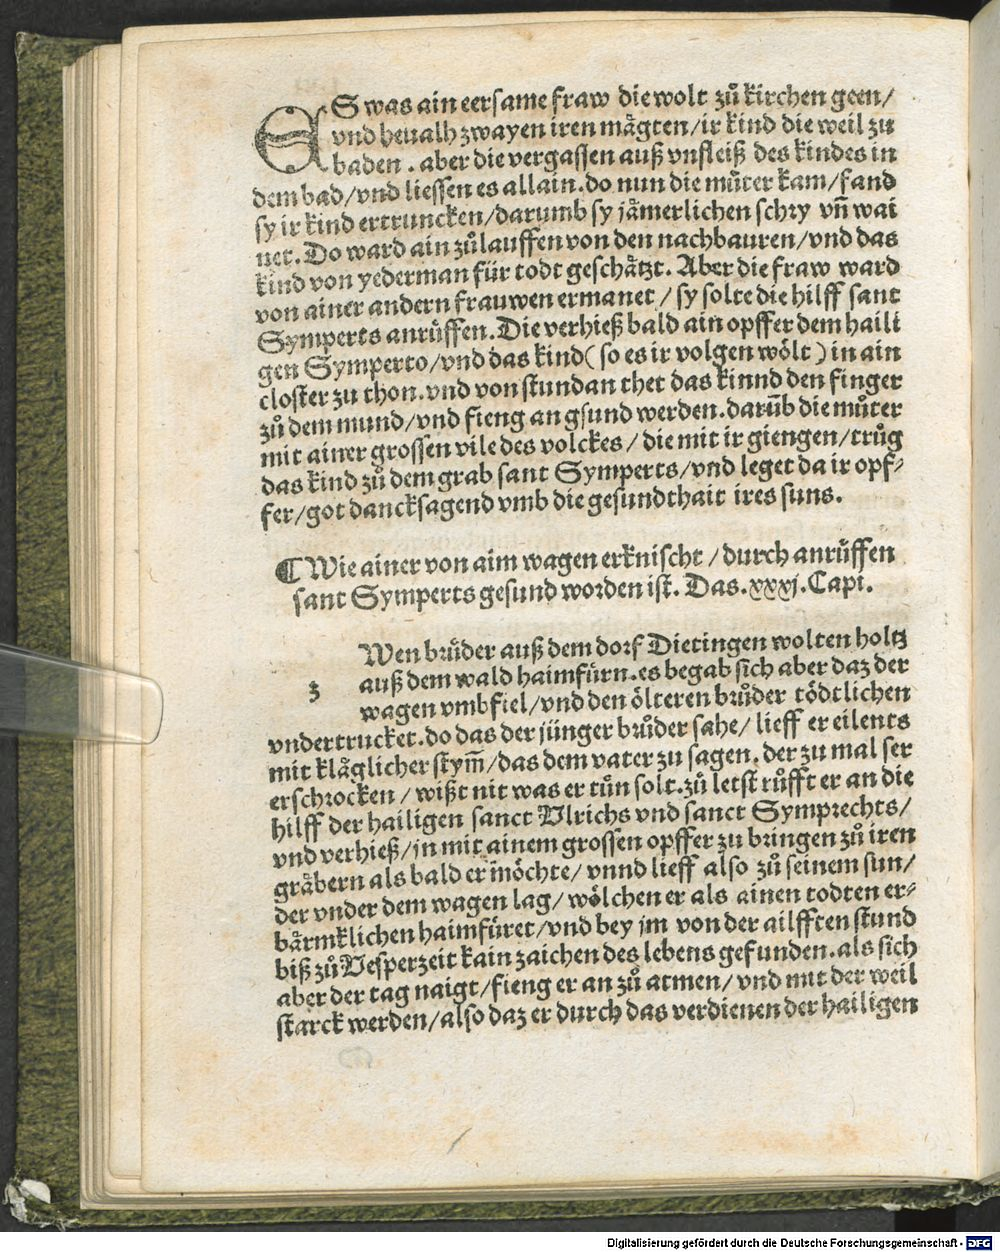 ES was ain eersame fraw die wolt zů kirchen geen/
vnd beualh zwayen iren mägten/ir kind die weil zu
baden . aber die vergassen auß vnfleiß des kindes in
dem bad/vnd liessen es allain.do nun die můter kam/fand
sy ir kind ertruncken/darumb sy jämerlichen schry vñ wai
net. Do ward ain zůlauffen von den nachbauren/vnd das
kind von yederman für todt geschätzt. Aber die fraw ward
von ainer andern frauwen ermanet / sy solte die hilff sant
Symperts anrůffen. Die verhieß bald ain opffer dem haili
gen Symperto/vnd das kind( so es ir volgen wölt ) in ain
closter zu thon. vnd von stundan thet das kinnd den finger
zů dem mund/vnd fieng an gsund werden. darũb die můter
mit ainer grossen vile des volckes / die mit ir giengen/trůg
das kind zů dem grab sant Symperts/vnd leget da ir opf⸗
fer/got dancksagend vmb die gesundthait ires suns.
¶ Wie ainer von aim wagen erknischt / durch anrůffen
sant Symperts gesund worden ist. Das. xxxj. Capi.
z Wen brůder auß dem dorf Dietingen wolten holtz
auß dem wald haimfürn.es begab sich aber daz der
wagen vmbfiel/vnd den ölteren brůder tödtlichen
vndertrucket.do das der jünger brůder sahe/ lieff er eilents
mit kläglicher stym̃/das dem vater zu sagen. der zu mal ser
erschrocken / wißt nit was er tůn solt.zů letst růfft er an die
hilff der hailigen sanct Vlrichs vnd sanct Symprechts/
vnd verhieß/jn mit ainem grossen opffer zu bringen zů iren
gräbern als bald er möchte/ vnnd lieff also zů seinem sun/
der vnder dem wagen lag/ wölchen er als ainen todten er⸗
bärmklichen haimfüret/vnd bey jm von der ailfften stund
biß zů Vesperzeit kain zaichen des lebens gefunden.als sich
aber der tag naigt/fieng er an zů atmen/ vnd mit der weil
starck werden/also daz er durch das verdienen der hailigen
Digitalisierung gefördert durch die Deutsche Forschungsgemeinschaft - DFG